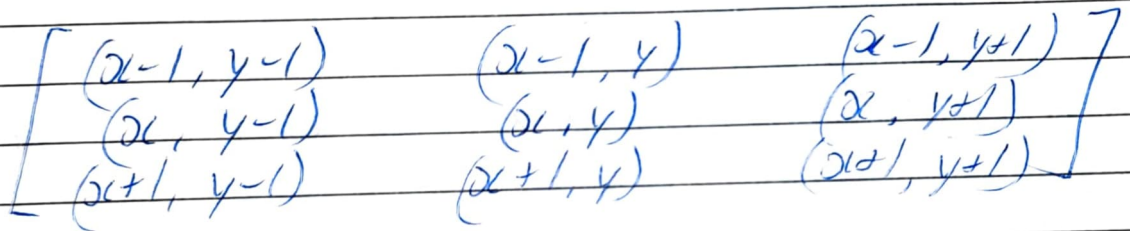 [ (x-1, y-1) (x-1, y) (x-1, y+1) ]
(x, y-1) (x, y) (x, y+1)
(x+1, y-1) (x+1, y) (x+1, y+1)